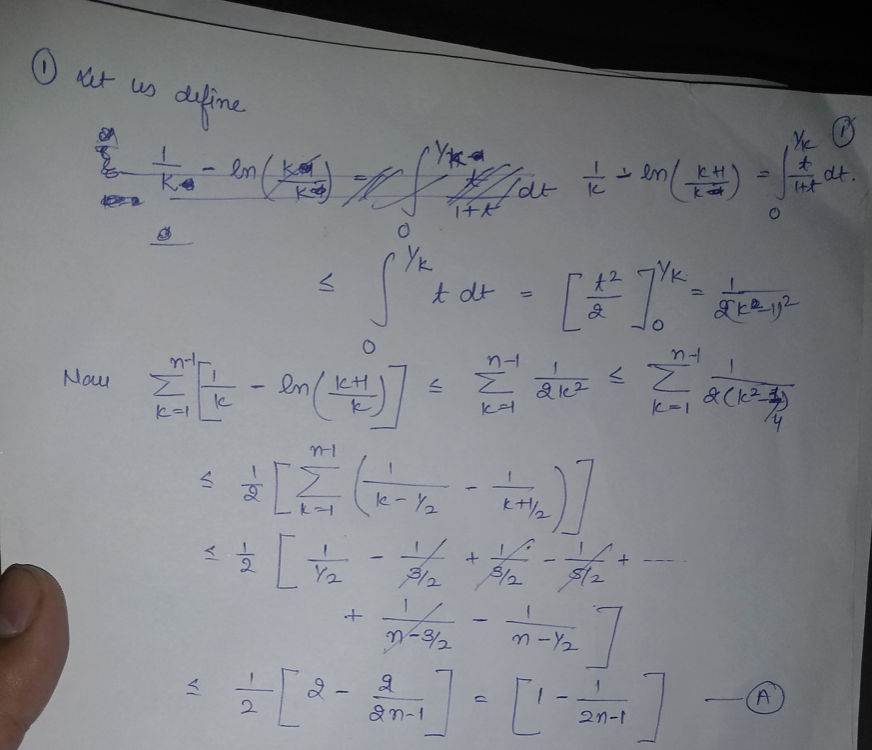 ① Let us define ①
1/k - ln(k+1/k) = ∫₀^{1/k} t/(1+t) dt.
≤ ∫₀^{1/k} t dt = [t²/2]₀^{1/k} = 1/2(k²-1)²
Now ∑_{k=1}^{n-1} [1/k - ln((k+1)/k)] ≤ ∑_{k=1}^{n-1} 1/2k² ≤ ∑_{k=1}^{n-1} 1/2(k²-1/4)
≤ 1/2 [∑_{k=1}^{n-1} (1/(k-1/2) - 1/(k+1/2))]
≤ 1/2 [1/(1/2) - 1/(3/2) + 1/(3/2) - 1/(5/2) + ----
+ 1/(n-3/2) - 1/(n-1/2)]
≤ 1/2 [2 - 2/(2n-1)] = [1 - 1/(2n-1)] — Ⓐ